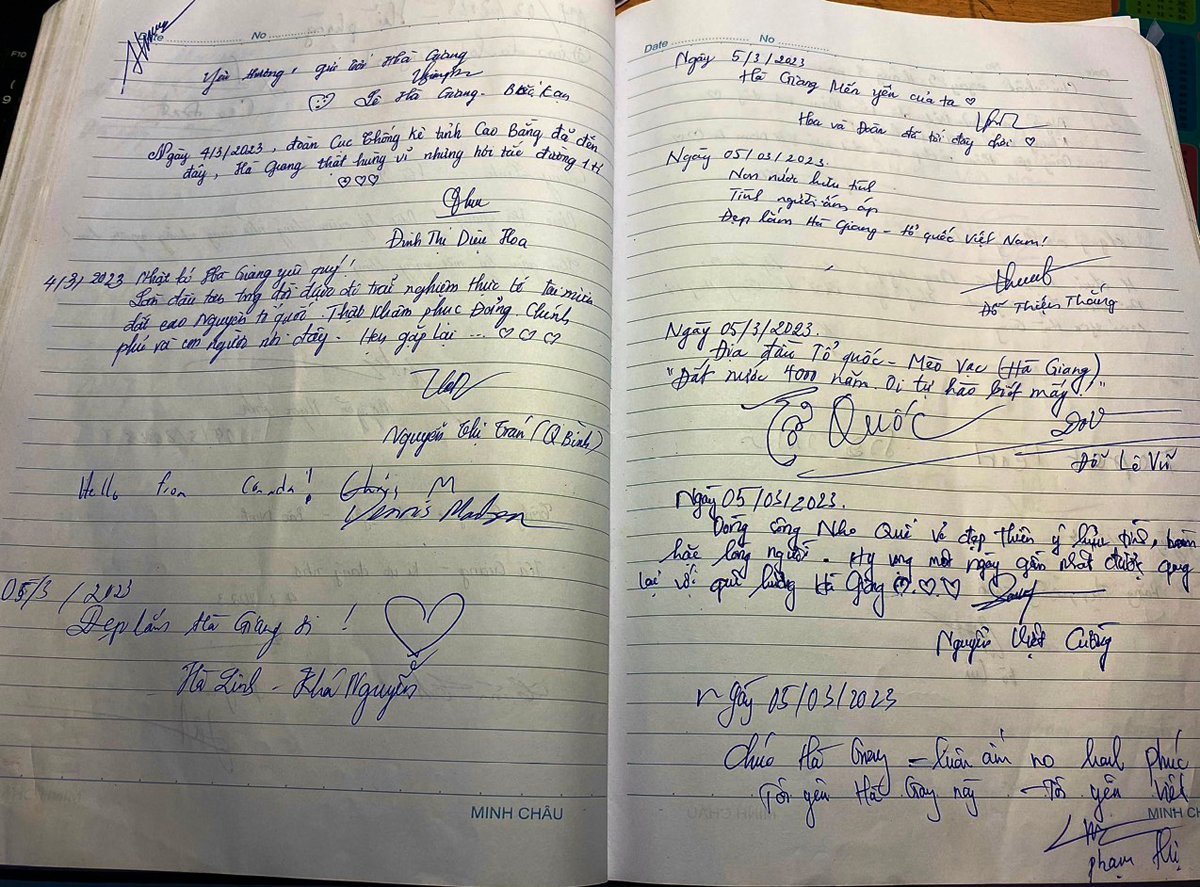 No
Yêu thương, gửi tới Hà Giang
Lê Hà Giang - Bắc Kạn
Ngày 4/3/2023, đoàn Cục thống kê tỉnh Cao Bằng đã đến
đây, Hà Giang thật hùng vĩ nhưng hơi tắc đường tí
Đinh Thị Diệu Hoa
4/3/2023 Nhật kí Hà Giang yêu quý!
Lần đầu tiên trong đời được đi trải nghiệm thực tế tại miền
đất cao Nguyên tổ quốc. Thật khâm phục Đảng, Chính
phủ và con người nơi đây. Hẹn gặp lại ...
Nguyễn Thị (Q Bình)
Hello from Canada! Chris M
Dennis Madsen
05/3/2023
Đẹp lắm Hà Giang ơi!
Hà Linh - Khá Nguyễn
MINH CHÂU
Date No
Ngày 5/3/2023
Hà Giang Mến yêu của ta
Hoa và Đoàn đã tới đây chơi
Ngày 05/03/2023.
Non nước hữu tình
Tình người ấm áp
Đẹp lắm Hà Giang - tổ quốc Việt Nam!
Đỗ Thắng
Ngày 05/3/2023.
Địa đầu Tổ quốc - Mèo Vạc (Hà Giang)
"Đất nước 4000 năm. Ôi tự hào biết mấy."
Quốc
Đỗ Lê Vũ
Ngày 05/03/2023.
Dòng sông Nho Quế vẻ đẹp thiên ý hữu tình,
hoặc lòng người. Hy vọng một ngày gần nhất được quay
lại với quê hương Hà Giang
Nguyễn Việt Cường
Ngày 05/03/2023
Chúc Hà Giang - luôn ấm no hạnh phúc
Tôi yêu Hà Giang này - Tôi yêu Việt
MINH CH
Phạm Thị